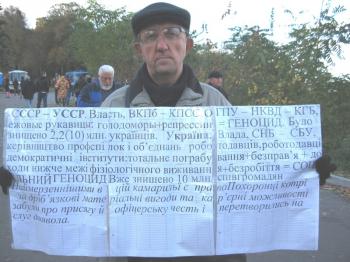 СССР – УССР. Власть, ВКПб – КПСС, ОГПУ – НКВД – КГБ,
ежовые рукавицы: голодоморы+репрессии = ГЕНОЦИД. Було
знищено 2,2(10) млн. українців. Україна, Влада, СНБ – СБУ,
керівництво профспілок і об'єднань роботодавців, роботодавці
демократичні інститути: тотальне пограбування+безправ'я +
ходи нижче межі фізіологічного виживання+безробіття = СОЦ
ЛЬНИЙ ГЕНОЦИД Вже знищено 10 млн. співгромадян
цій камарильї с Похоронці котрі
за дріб'язкові мате ріальні вигоди та кар'єрні можливості
забули про присягу й офіцерську честь і перетворились на
слуг дьявола.